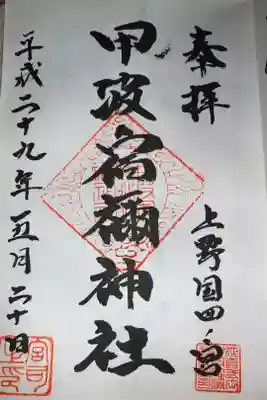 奉拝
上野国四ノ宮
甲波宿禰神社
平成二十九年五月二十日